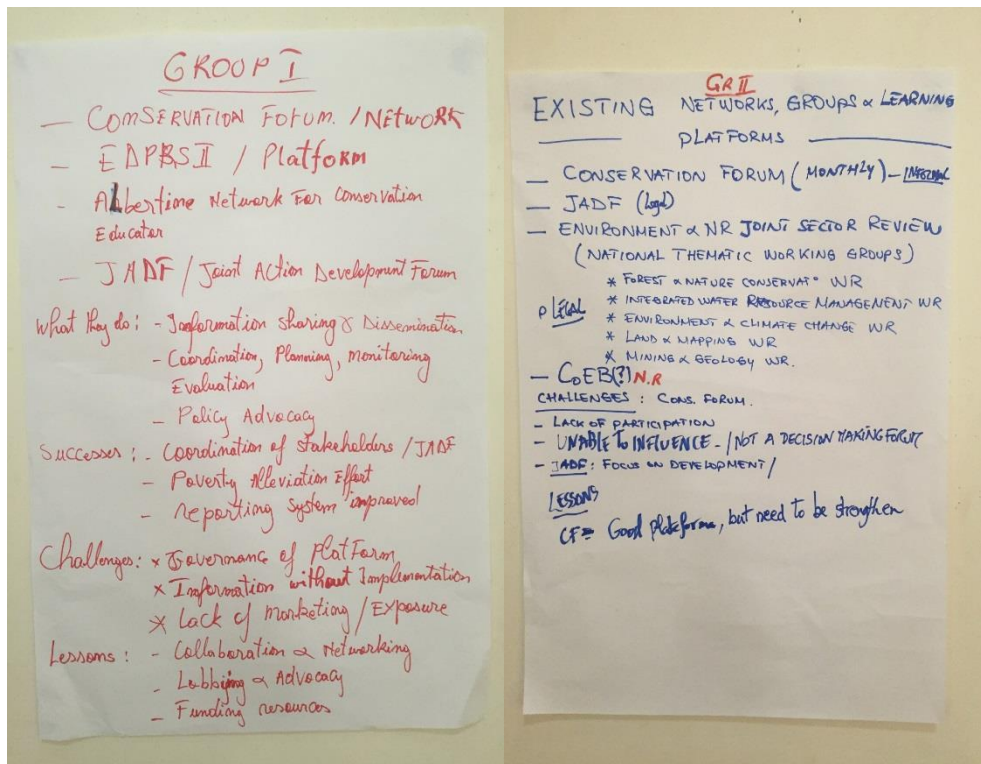 GROUP I
— CONSERVATION FORUM. / NETWORK
— EDPRSII / Platform
- Albertime Network For Conservation
Educator
— JADF / Joint Action Development Forum
What they do: - Imformation sharing & Dissemination
- Coordination, Planning, monitoring
Evaluation
- Policy Advocacy
Successes: - Coordination of stakeholders / JADF
- Poverty Alleviation Effort
- reporting System improved
Challenges: × Governance of PlatForm
× Information without Implementation
× Lack of marketing / Exposure
Lessons: - Collaboration & Networking
- Lobbying & Advocacy
- Funding resources
GR II
EXISTING NETWORKS, GROUPS & LEARNING
PLATFORMS
— CONSERVATION FORUM (MONTHLY) - INFORMAL
— JADF (Legal)
— ENVIRONMENT & NR JOINT SECTOR REVIEW
(NATIONAL THEMATIC WORKING GROUPS)
* FOREST & NATURE CONSERVAT° WR
* INTEGRATED WATER RESOURCE MANAGEMENT WR
LEGAL
* ENVIRONMENT & CLIMATE CHANGE WR
* LAND & MAPPING WR
* MINING & GEOLOGY WR.
— CoEB(?) N.R
CHALLENGES : CONS. FORUM.
- LACK OF PARTICIPATION
- UNABLE TO INFLUENCE - / NOT A DECISION MAKING FORUM
- JADF: FOCUS ON DEVELOPMENT /
LESSONS
CF = Good plateforme, but need to be strengthen